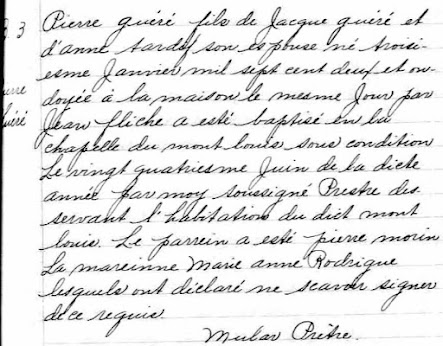 B 3
Pierre guéré fils de Jacque guéré et
d'anne tardif son espouse né troisi-
esme Janvier mil sept cent deux et on-
doyée à la maison le mesme Jour par
Jean fliche a esté baptisé en la
chapelle du mont louis sous condition
Le vingt quatriesme Juin de la dicte
année par moy soussigné Prestre des-
servant l'habitation du dict mont
louis. Le parrein a esté pierre morin
La mareinne Marie anne Rodrigue
lesquels ont déclaré ne scavoir signer
de ce requis
Prêtre.